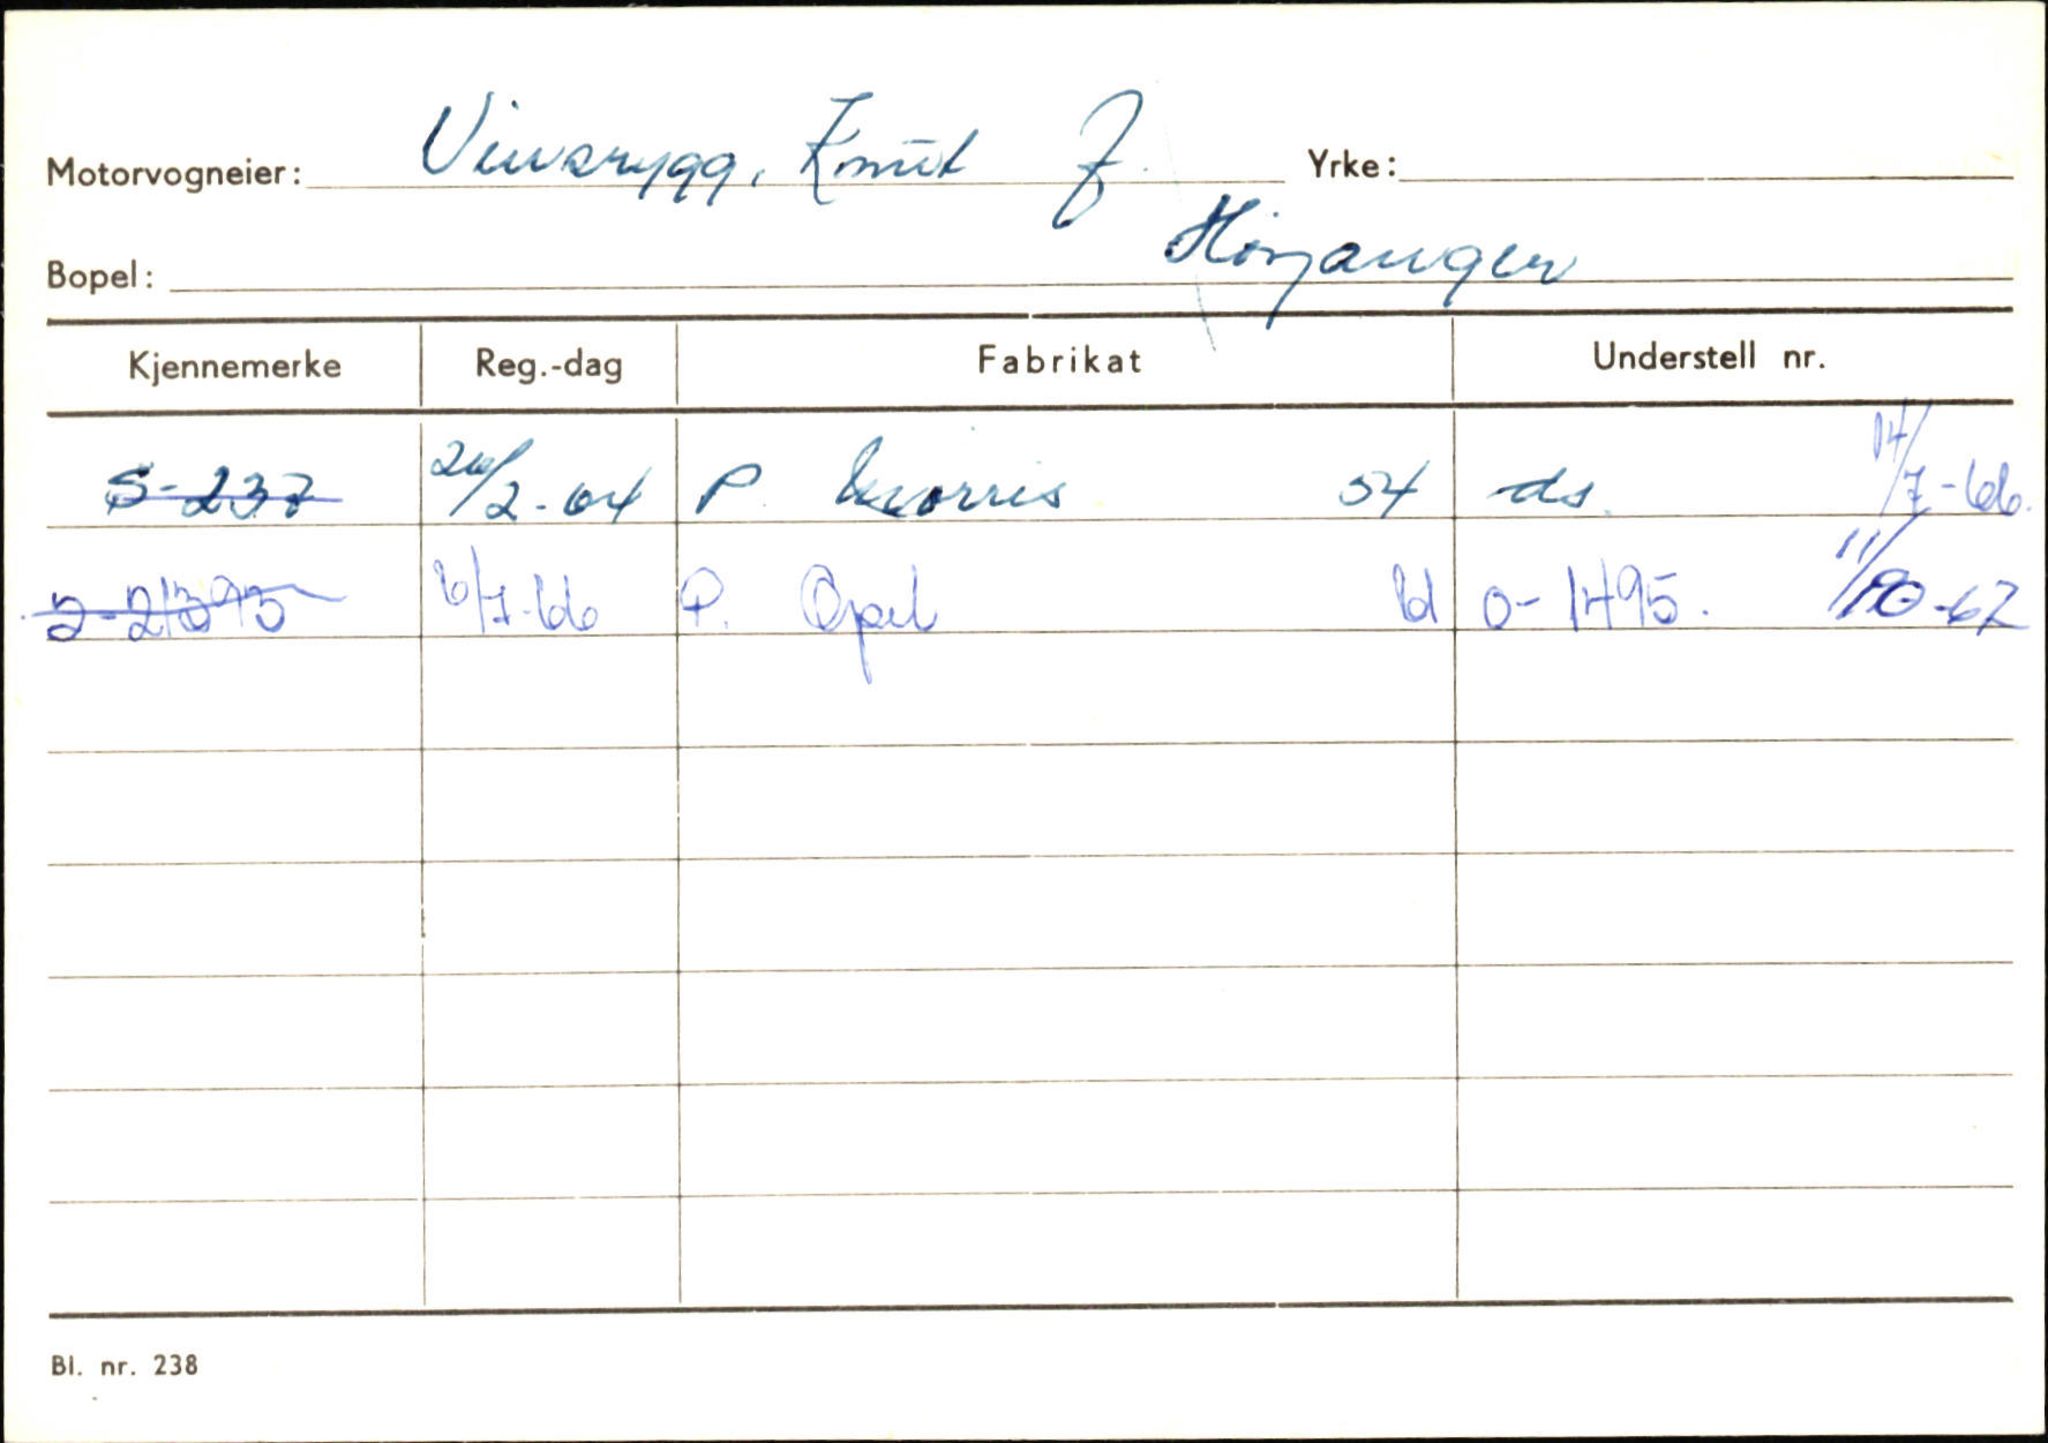 Motorvogneier: Vinsrygg, Knut J. Yrke:
Bopel: Höyanger
Kjennemerke Reg.-dag Fabrikat Understell nr.
S-237 26/2-64 P. Morris 54 ds. 14/7-66.
S-21393 6/7-66 P. Opel 61 0-1495. 11/10-67
Bl. nr. 238